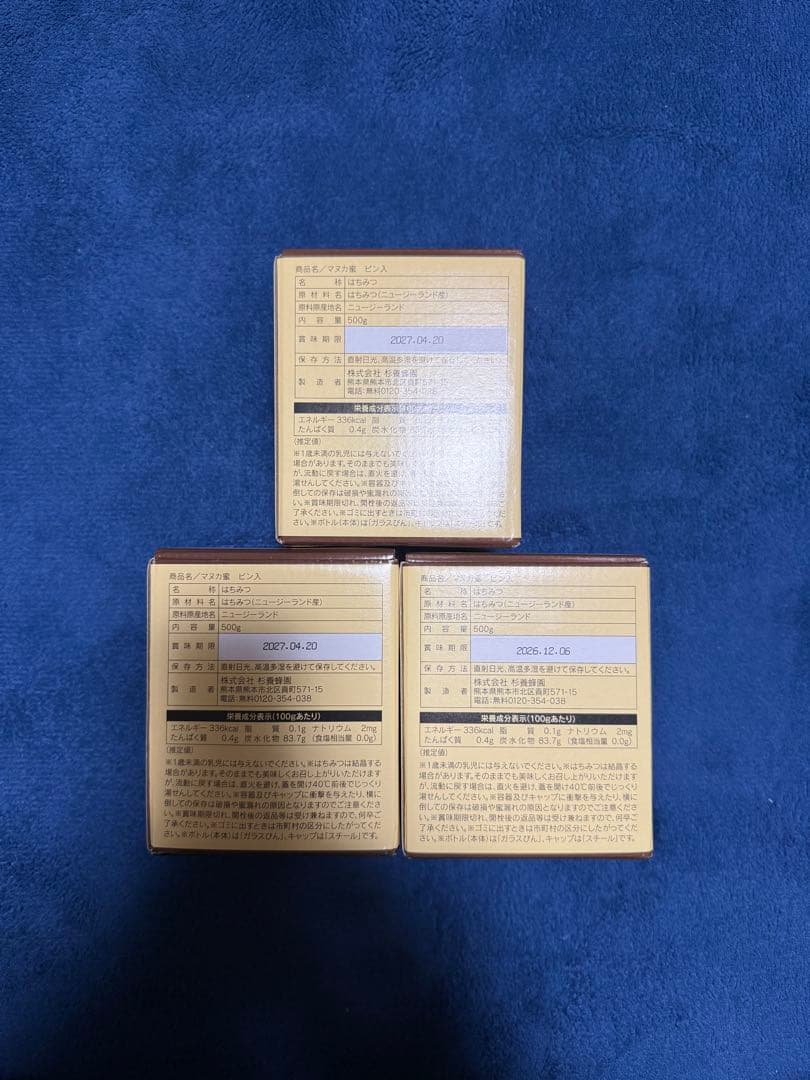 商品名/マヌカ蜜　ビン入
名称 はちみつ
原材料名 はちみつ(ニュージーランド産)
原料原産地名 ニュージーランド
内容量 500g
賞味期限 2027.04.20
保存方法 直射日光、高温多湿を避けて保存してください。
製造者 株式会社 杉養蜂園
熊本県熊本市北区貢町571-15
電話:無料0120-354-038
栄養成分表示
エネルギー 336kcal 脂質
たんぱく質 0.4g 炭水化物
(推定値)
※1歳未満の乳児には与えないでください。
場合があります。そのままでも美味し
が、流動に戻す場合は、直火を避け
湯せんしてください。※容器及びキ
倒しての保存は破損や蜜漏れの
い。※賞味期限切れ、開栓後の返品等
了承ください。※ゴミに出すときは市町村
※ボトル(本体)は「ガラスびん」、キャップは「スチール」です。
商品名/マヌカ蜜　ビン入
名称 はちみつ
原材料名 はちみつ(ニュージーランド産)
原料原産地名 ニュージーランド
内容量 500g
賞味期限 2027.04.20
保存方法 直射日光、高温多湿を避けて保存してください。
製造者 株式会社 杉養蜂園
熊本県熊本市北区貢町571-15
電話:無料0120-354-038
栄養成分表示(100gあたり)
エネルギー 336kcal 脂質 0.1g ナトリウム 2mg
たんぱく質 0.4g 炭水化物 83.7g (食塩相当量 0.0g)
(推定値)
※1歳未満の乳児には与えないでください。※はちみつは結晶する
場合があります。そのままでも美味しくお召し上がりいただけます
が、流動に戻す場合は、直火を避け、蓋を開け40℃前後でじっくり
湯せんしてください。※容器及びキャップに衝撃を与えたり、横に
倒しての保存は破損や蜜漏れの原因となりますのでご注意くださ
い。※賞味期限切れ、開栓後の返品等は受け兼ねますので、何卒ご
了承ください。※ゴミに出すときは市町村の区分にしたがってくだ
さい。※ボトル(本体)は「ガラスびん」、キャップは「スチール」です。
商品名/マヌカ蜜　ビン入
名称 はちみつ
原材料名 はちみつ(ニュージーランド産)
原料原産地名 ニュージーランド
内容量 500g
賞味期限 2026.12.06
保存方法 直射日光、高温多湿を避けて保存してください。
製造者 株式会社 杉養蜂園
熊本県熊本市北区貢町571-15
電話:無料0120-354-038
栄養成分表示(100gあたり)
エネルギー 336kcal 脂質 0.1g ナトリウム 2mg
たんぱく質 0.4g 炭水化物 83.7g (食塩相当量 0.0g)
(推定値)
※1歳未満の乳児には与えないでください。※はちみつは結晶する
場合があります。そのままでも美味しくお召し上がりいただけます
が、流動に戻す場合は、直火を避け、蓋を開け40℃前後でじっくり
湯せんしてください。※容器及びキャップに衝撃を与えたり、横に
倒しての保存は破損や蜜漏れの原因となりますのでご注意くださ
い。※賞味期限切れ、開栓後の返品等は受け兼ねますので、何卒ご
了承ください。※ゴミに出すときは市町村の区分にしたがってくだ
さい。※ボトル(本体)は「ガラスびん」、キャップは「スチール」です。